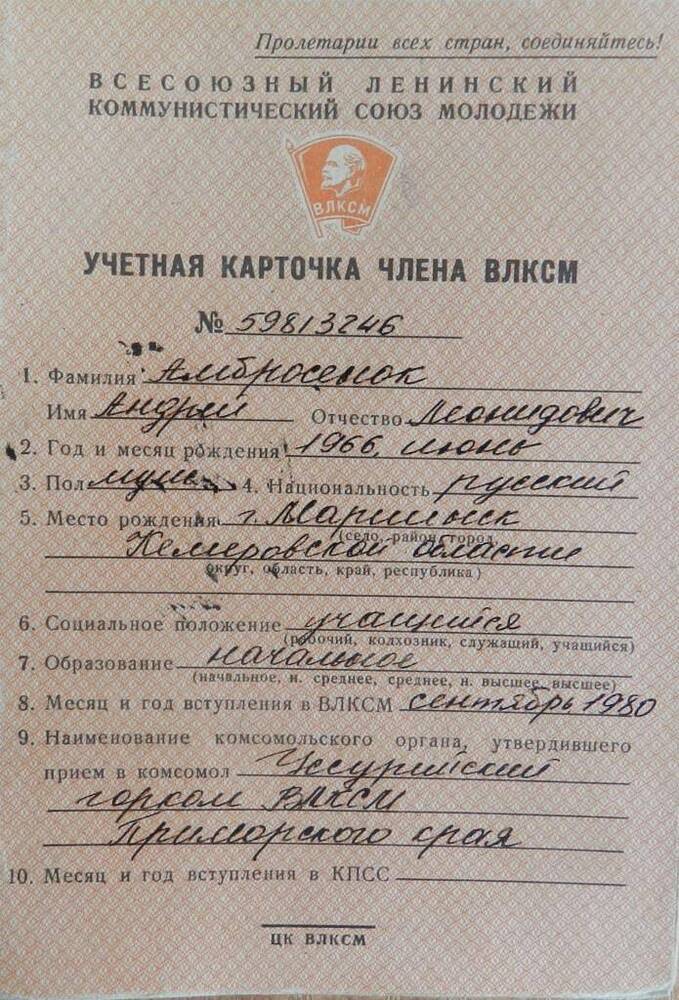 Пролетарии всех стран, соединяйтесь!
ВСЕСОЮЗНЫЙ ЛЕНИНСКИЙ
КОММУНИСТИЧЕСКИЙ СОЮЗ МОЛОДЕЖИ
ВЛКСМ
УЧЕТНАЯ КАРТОЧКА ЧЛЕНА ВЛКСМ
№ 59813246
1. Фамилия Амбросенок
Имя Андрей Отчество Леонидович
2. Год и месяц рождения 1966, июнь
3. Пол муж. 4. Национальность русский
5. Место рождения г. Мариинск
(село, район, город,
Кемеровской области
округ, область, край, республика)
6. Социальное положение учащийся
(рабочий, колхозник, служащий, учащийся)
7. Образование начальное
(начальное, н. среднее, среднее, н. высшее, высшее)
8. Месяц и год вступления в ВЛКСМ сентябрь 1980
9. Наименование комсомольского органа, утвердившего
прием в комсомол Уссурийский
горком ВЛКСМ
Приморского края
10. Месяц и год вступления в КПСС
ЦК ВЛКСМ